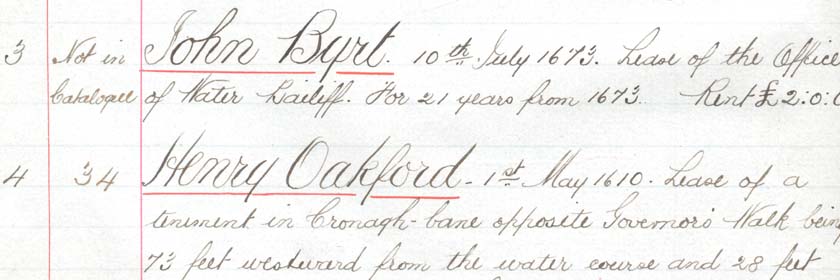 3 Not in John Byrt. 10th July 1673. Lease of the Office
Catalogue of Water Bailiff. For 21 years from 1673. Rent £2:0:0
4 34 Henry Oakford - 1st May 1610. Lease of a
teniment in Cronagh-bane opposite Governor's Walk being
73 feet westward from the water course and 28 feet